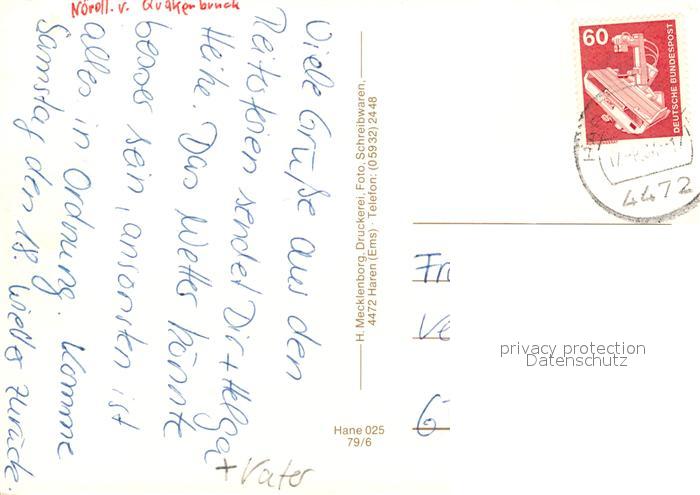 Nördl. v. Quakenbrück
Viele Grüße aus den
Reitsferien sendet Dir + Helga
Heike. Das Wetter könnte
besser sein, ansonsten ist
alles in Ordnung. Komme
Samstag den 18. wieder zurück.
+ Vater
H. Mecklenborg, Druckerei, Foto, Schreibwaren,
4472 Haren (Ems) · Telefon: (05932) 2448
Hane 025
79/6
60
DEUTSCHE BUNDESPOST
4472
Fr
Ve
privacy protection
Datenschutz